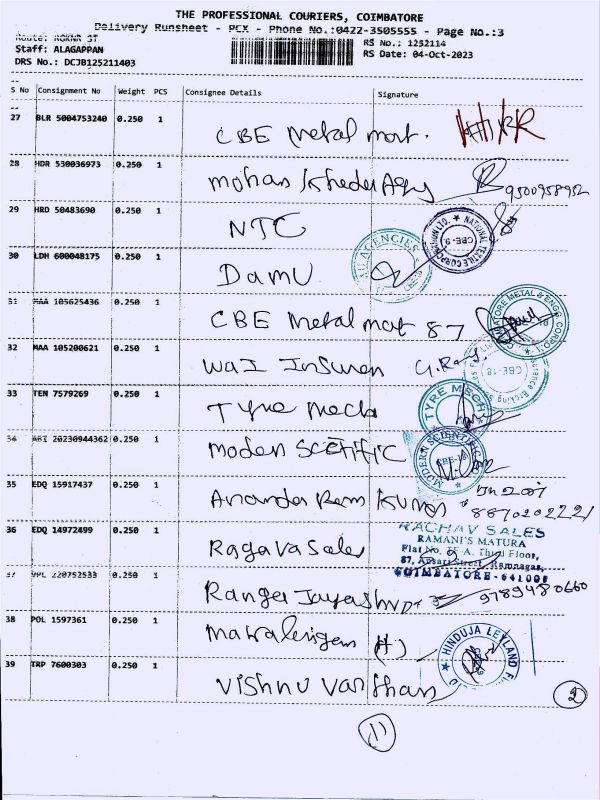 THE PROFESSIONAL COURIERS, COIMBATORE
Delivery Runsheet - PCX - Phone No.:0422-3505555 - Page No.:3
RS No.: 1252114
Staff: ALAGAPPAN
RS Date: 04-Oct-2023
DRS No.: DCJB125211403
S No Consignment No Weight PCS Consignee Details Signature
27 BLR 5004753240 0.250 1 CBE Metal mart.
28 HDR 530036973 0.250 1 Mohan Kheder 9500958952
29 HRD 50483690 0.250 1 NTC
NATIONAL TEXTILE CORPORATION LTD. CBE-9
30 LDH 600048175 0.250 1 Damu
AGENCIES
31 MAA 105625436 0.250 1 CBE Metal mat 87
COIMBATORE METAL & ENGG CORPO.
32 MAA 105200621 0.250 1 Wai Insuren
CBE-18
33 TEN 7579269 0.250 1 Tyre Mech
TYRE MECH
34 ABI 20230944362 0.250 1 Moden Scetific
MODERN SCIENTIFIC CBE-18
35 EDQ 15917437 0.250 1 Ananda Ram Kumar
8870202221
36 EDQ 14972499 0.250 1 Ragava Sales
RAGHAV SALES
RAMANI'S MATURA
Flat No. A, Third Floor,
87, Ansari Street, Ramnagar,
COIMBATORE-641009
37 VPL 220752533 0.250 1 Ranger Jayashri 9789480660
38 POL 1597361 0.250 1 (H)
HINDUJA LEYLAND
39 TRP 7600303 0.250 1 Vishnu Vardhan
2
11